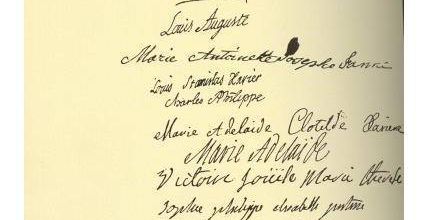 Louis Auguste
Marie Antoinette Josepha Jeanne
Louis Stanislas Xavier
Charles Philippe
Marie Adelaide Clotilde Xaviere
Marie Adelaide
Victoire Loüise Marie Therese
Sophie philippe elisabeth justine